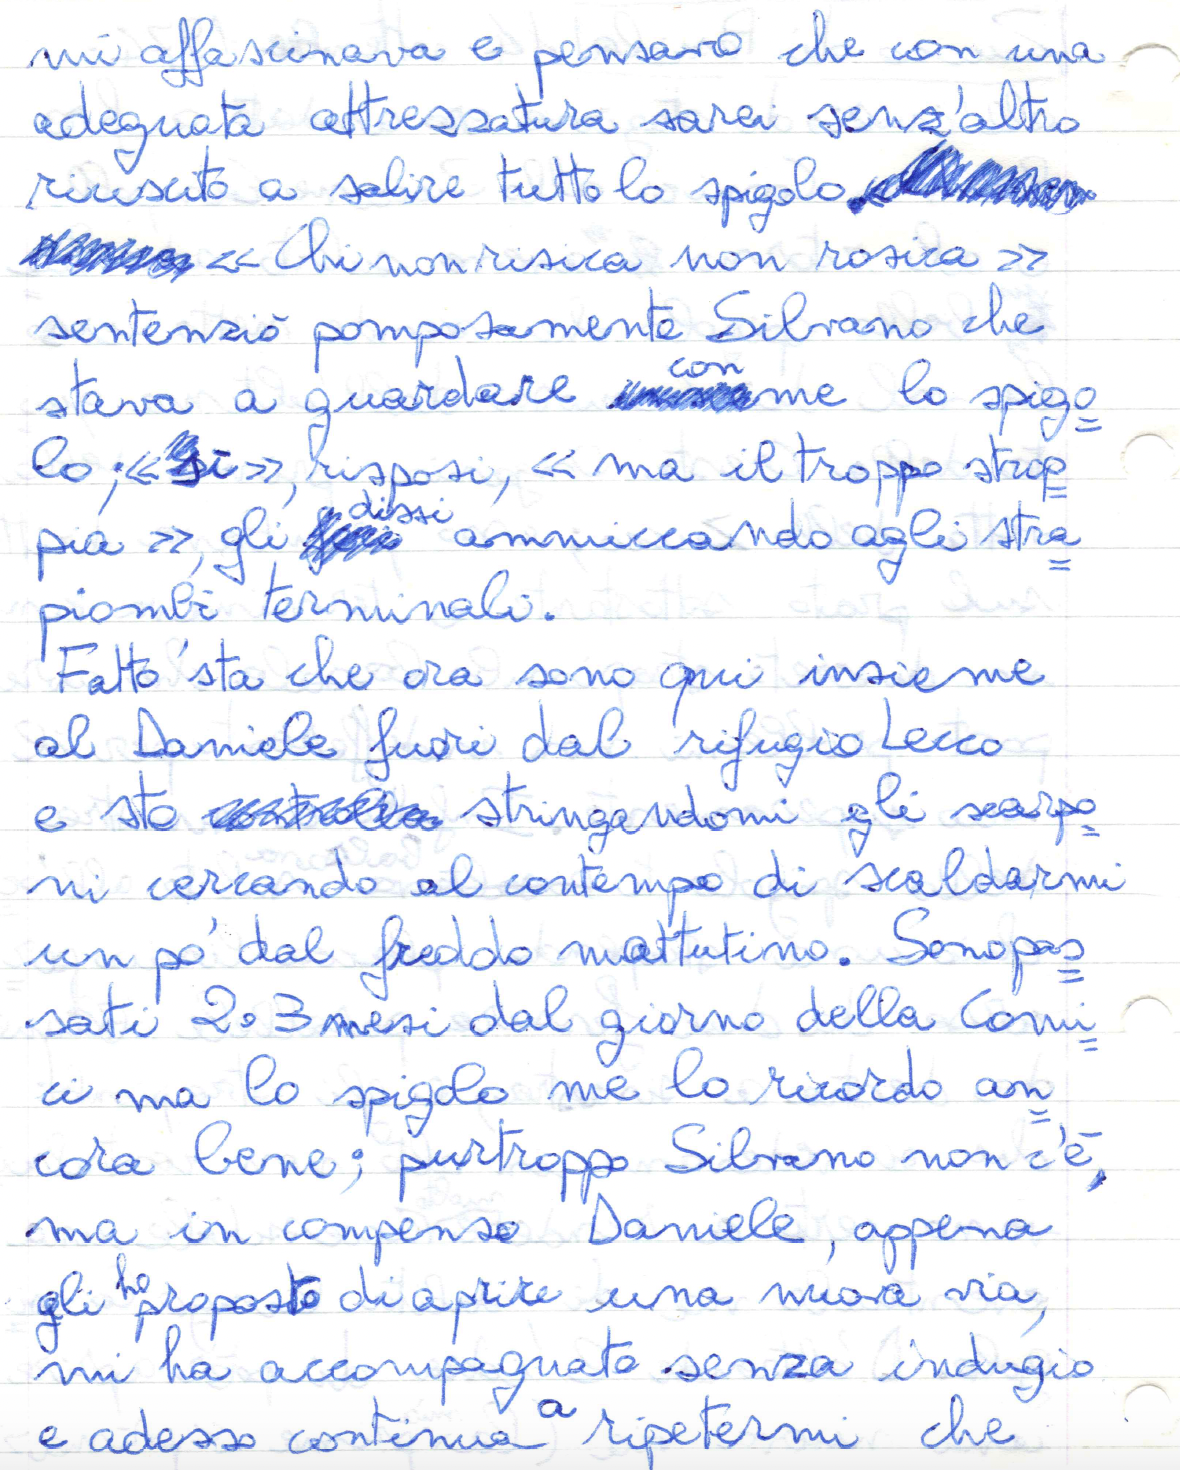 mi affascinava e pensavo che con una
adeguata attrezzatura sarei senz'altro
riuscito a salire tutto lo spigolo.
« Chi non risica non rosica »
sentenziò pomposamente Silvano che
stava a guardare con me lo spigo
lo; «sì», risposi, « ma il troppo strop
pia », gli dissi ammiccando agli stra
piombi terminali.
Fatto sta che ora sono qui insieme
al Daniele fuori dal rifugio Lecco
e sto stringendomi gli scarpo
ni cercando al contempo di scaldarmi
un pò dal freddo mattutino. Sono pas
sati 2 o 3 mesi dal giorno della Comi
ci ma lo spigolo me lo ricordo an
cora bene; purtroppo Silvano non c'è,
ma in compenso Daniele, appena
gli ho proposto di aprire una nuova via,
mi ha accompagnato senza indugio
e adesso continua a ripetermi che